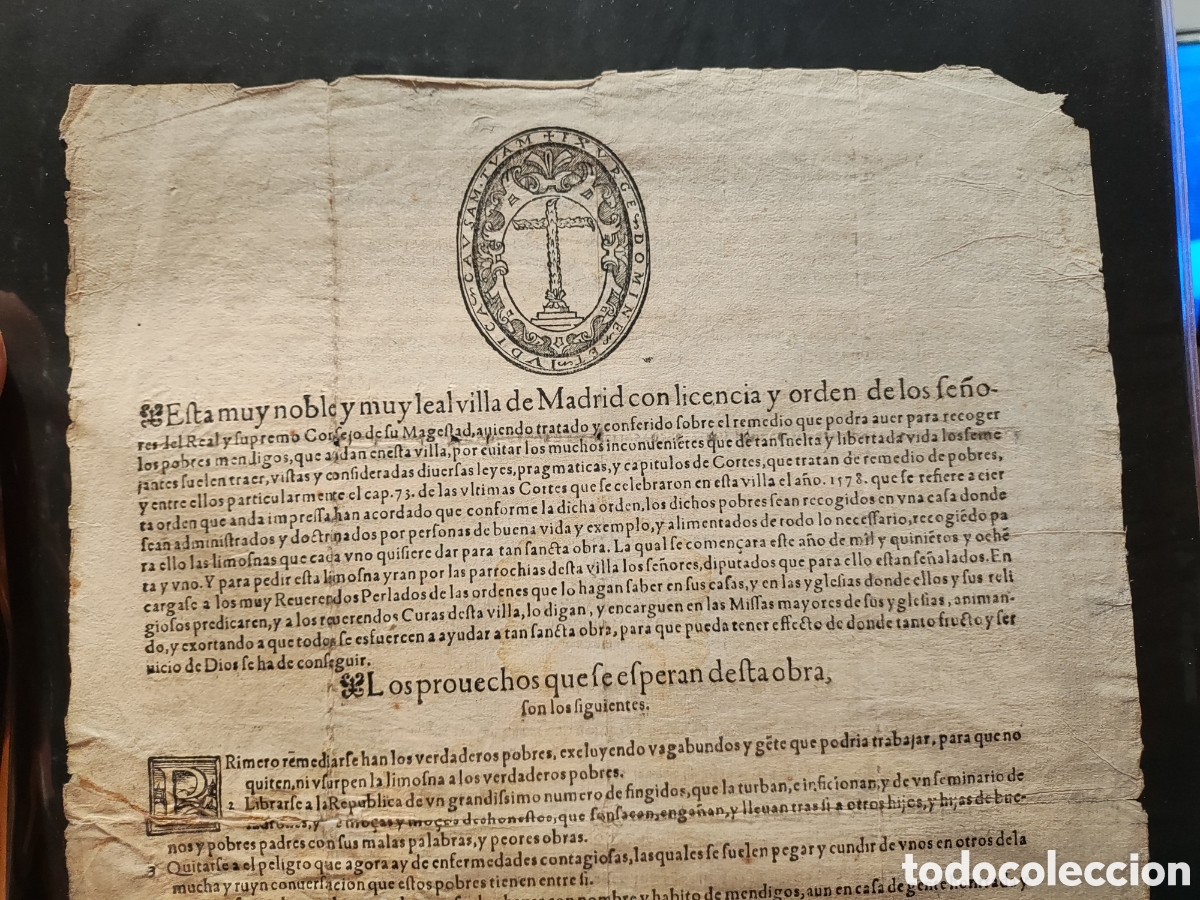 ✠ EXVRGE DOMINE ET IVDICA CAVSAM TVAM
Esta muy noble y muy leal villa de Madrid con licencia y orden de los seño-
res del Real y supremo Consejo de su Magestad, auiendo tratado y conferido sobre el remedio que podra auer para recoger
los pobres mendigos, que andan enesta villa, por euitar los muchos inconueniẽtes que de tan suelta y libertada vida los seme
jantes suelen traer, vistas y consideradas diuersas leyes, pragmaticas, y capitulos de Cortes, que tratan de remedio de pobres,
y entre ellos particularmente el cap. 73. de las vltimas Cortes que se celebraron en esta villa el año. 1578. que se refiere a cier
ta orden que anda impressa han acordado que conforme la dicha orden, los dichos pobres sean recogidos en vna casa donde
sean administrados y doctrinados por personas de buena vida y exemplo, y alimentados de todo lo necessario, recogiẽdo pa
ra ello las limosnas que cada vno quisiere dar para tan sancta obra. La qual se començara este año de mil y quiniẽtos y ochẽ
ta y vno. Y para pedir esta limosna yran por las parrochias desta villa los señores, diputados que para ello estan señalados. En
cargase a los muy Reuerendos Perlados de las ordenes que lo hagan saber en sus casas, y en las yglesias donde ellos y sus reli
giosos predicaren, y a los reuerendos Curas desta villa, lo digan, y encarguen en las Missas mayores de sus yglesias, animan-
do, y exortando a que todos se esfuercen a ayudar a tan sancta obra, para que pueda tener effecto de donde tanto fructo y ser
uicio de Dios se ha de conseguir.
Los prouechos que se esperan desta obra,
son los siguientes.
PRimero rẽmediarse han los verdaderos pobres, excluyendo vagabundos y gẽte que podria trabajar, para que no
quiten, ni vsurpen la limosna a los verdaderos pobres.
2 Librarse a la Republica de vn grandissimo numero de fingidos, que la turban, e inficionan, y de vn seminario de
ladrones, y moças y moços deshonestos, que sonsacan, engañan, y lleuan tras si a otros hijos, y hijas de bue-
nos y pobres padres con sus malas palabras, y peores obras.
3 Quitarse a el peligro que agora ay de enfermedades contagiosas, las quales se suelen pegar y cundir de vnos en otros de la
mucha y ruyn conuersacion que estos pobres tienen entre si.
con nombre y habito de mendigos, aun en casa de gente honrada, y
todocoleccion